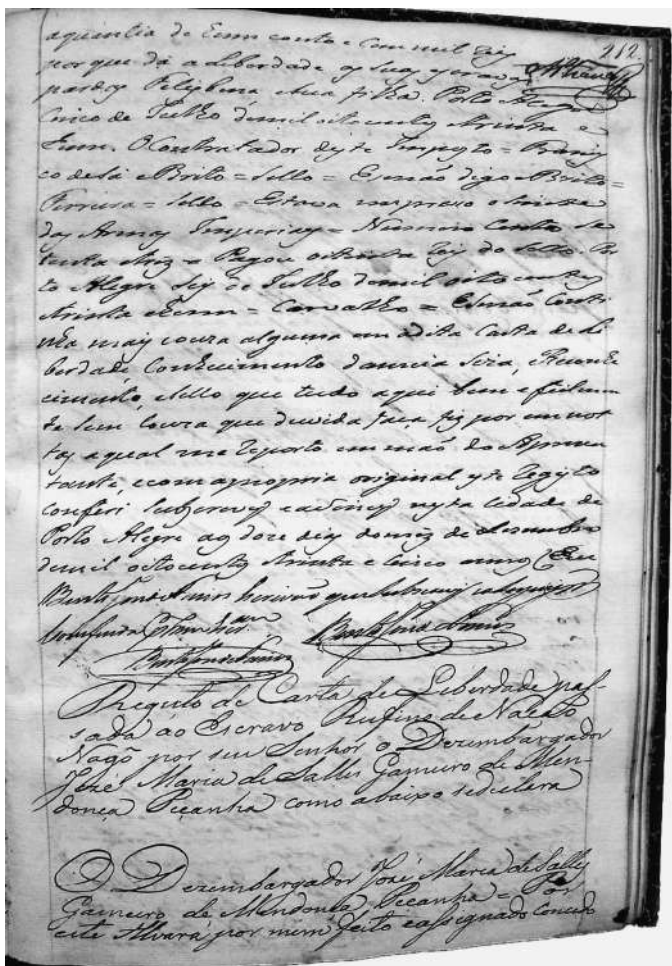 aquantia de hum conto e cem mil reis 212.
por que dá a Liberdade as suas escravas
pardas Felisbina e sua filha. Porto Alegre
cinco de Julho de mil oito centos e trinta e
hum. O Contratador deste Imposto = Francis
co de Sá e Brito = Sello = E não digo e Brito =
Ferreira = Sello = Estava impresso o sinete
das Armas Imperiaes = Numero cento se
tenta e tres = Pagou oitenta reis do Sello. Por
to Alegre seis de Julho de mil oito centos
trinta e hum = Carvalho = E não conti
nha mais couza alguma em a dita Carta de Li
berdade, Conhecimento da meia siza, e Reconhe
cimento, e Sello que tudo aqui bem e fielmen
te sem couza que duvida faça fiz por em not
tas a qual me reporto em mão do Aprezen
tante, e com a propria original este registo
conferi subscrevy e assiney nesta Cidade de
Porto Alegre aos doze dias do mez de Dezembro
de mil oito centos trinta e cinco annos Eu
Bento José de Farias Escrivão que subscrevi e assignei
Conferida
Registo de Carta de Liberdade pas-
sada ao Escravo Rufino de Nação
Nagô por seu Senhor o Dezembargador
José Maria de Salles Gameiro de Men-
donça Peçanha como abaixo se declara
O Dezembargador José Maria de Salles
Gameiro de Mendonça Peçanha = Por
este Alvará por mim feito e assignado concedo